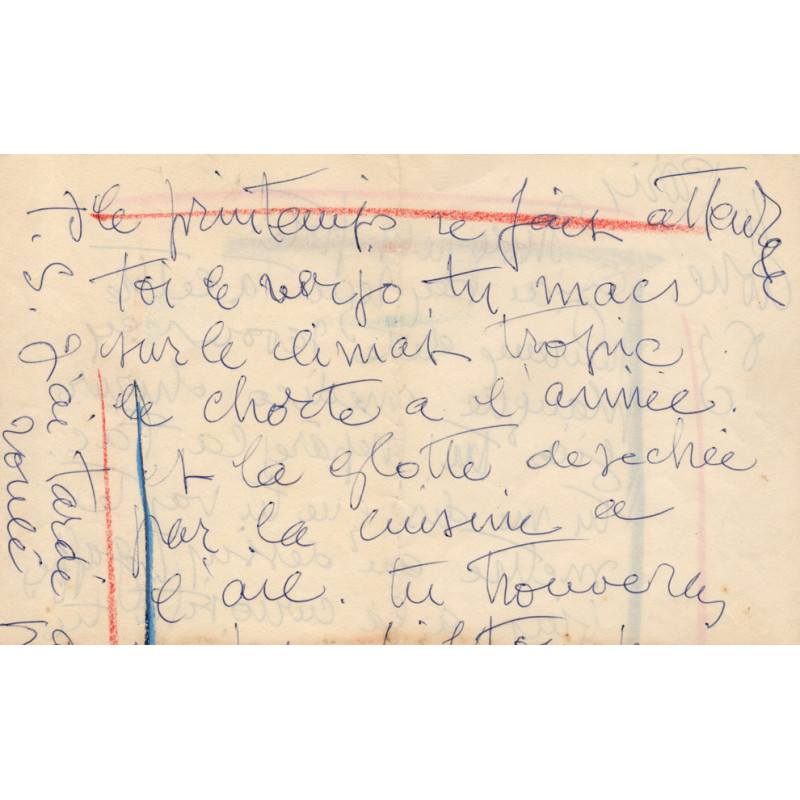 le printemps se fait attendre
toi le verjo, tu macs
sur le climat tropic
de chocte a l'année.
et la glotte desechée
par la cuisine a
l'ail. tu trouveras
P.S. J'ai tardé
roulé